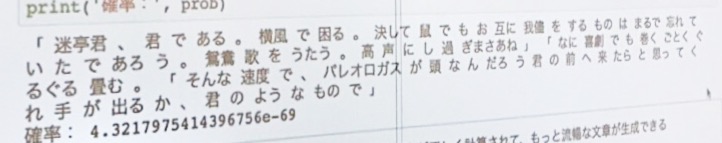 print('確率：', prob)
「 迷亭君 、 君 で ある 。 横風 で 困る 。 決して 鼠 で も お 互に 我儘 を する もの は まるで 忘れ て
い た で あろ う 。 鴛鴦 歌 を うたう 。 高 声 に し 過 ぎまさあね 」 「 なに 喜劇 で も 巻く ごとく ぐ
るぐる 畳む 。 「 そんな 速度 で 、 パレオロガス が 頭 な ん だろ う 君 の 前 へ 来 たら と 思っ て く
れ 手 が 出る か 、 君 の ような もの で 」
確率： 4.3217975414396756e-69
計算されて、もっと流暢な文章が生成できる